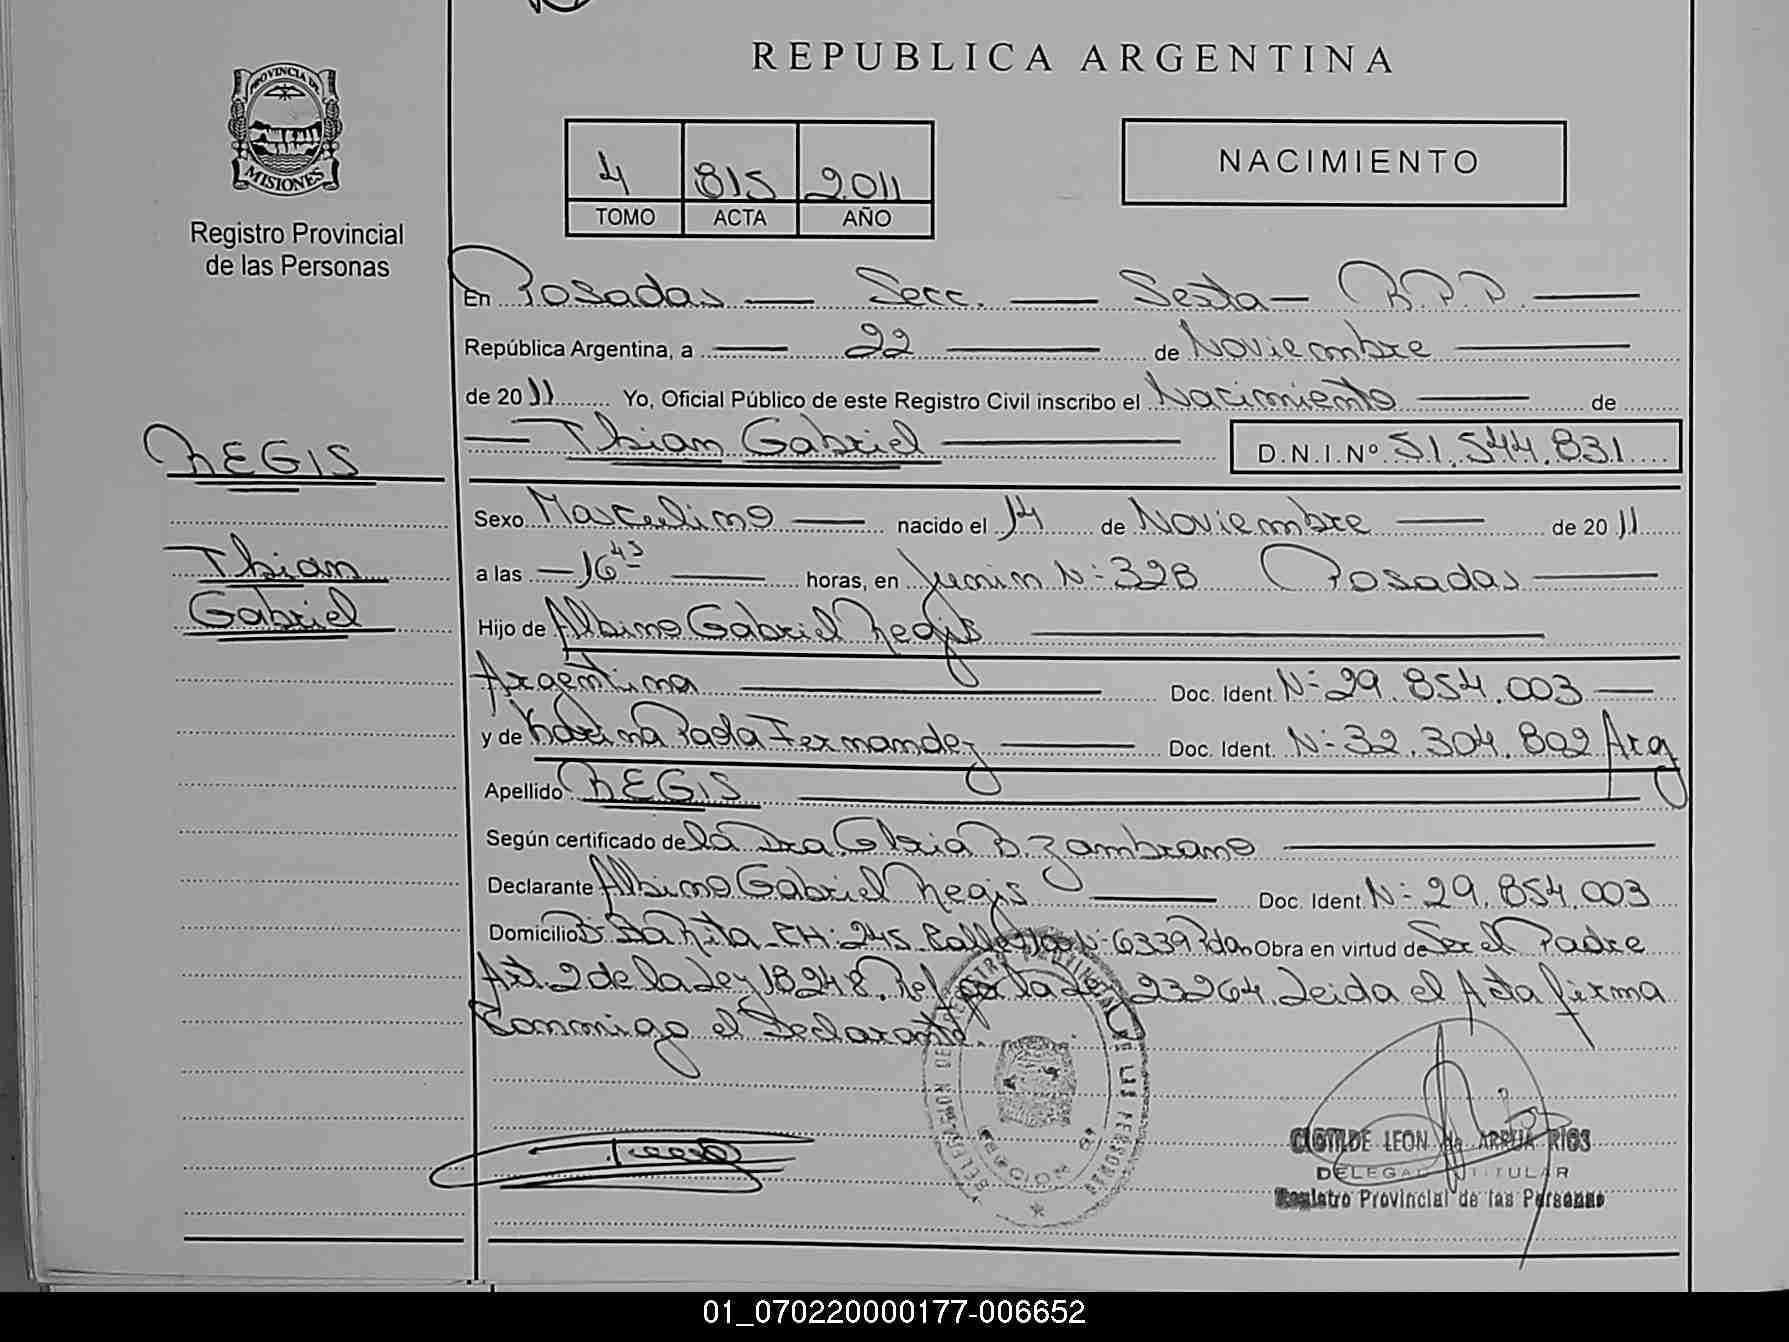 REPUBLICA ARGENTINA
PROVINCIA DE
MISIONES
Registro Provincial
de las Personas
4 815 2011
TOMO ACTA AÑO
NACIMIENTO
En Posadas — Secc. — Sexta — R.P.P. —
República Argentina, a — 22 — de Noviembre —
de 2011 Yo, Oficial Público de este Registro Civil inscribo el Nacimiento — de
— Thian Gabriel — D.N.I.Nº 51.544.831
REGIS
Thian
Gabriel
Sexo Masculino — nacido el 14 de Noviembre — de 2011
a las — 16 45 — horas, en Junin N: 328 Posadas —
Hijo de Albino Gabriel Regis —
Argentina — Doc. Ident. N: 29.854.003 —
y de Karina Paola Fernandez — Doc. Ident. N: 32.304.802 Arg
Apellido REGIS —
Según certificado de la Dra Gloria B. Zambrano —
Declarante Albino Gabriel Regis — Doc. Ident N: 29.854.003
Domicilio B: Sta Rita CH: 245 N: 6339 Pdas Obra en virtud de Ser el Padre
Art. 2 de la Ley 18248. Ref por la Ley 23264. Leida el Acta firma
Conmigo el Declarante.
CLOTILDE LEON de ARRUA RIOS
DELEGADA TITULAR
Registro Provincial de las Personas
01_070220000177-006652